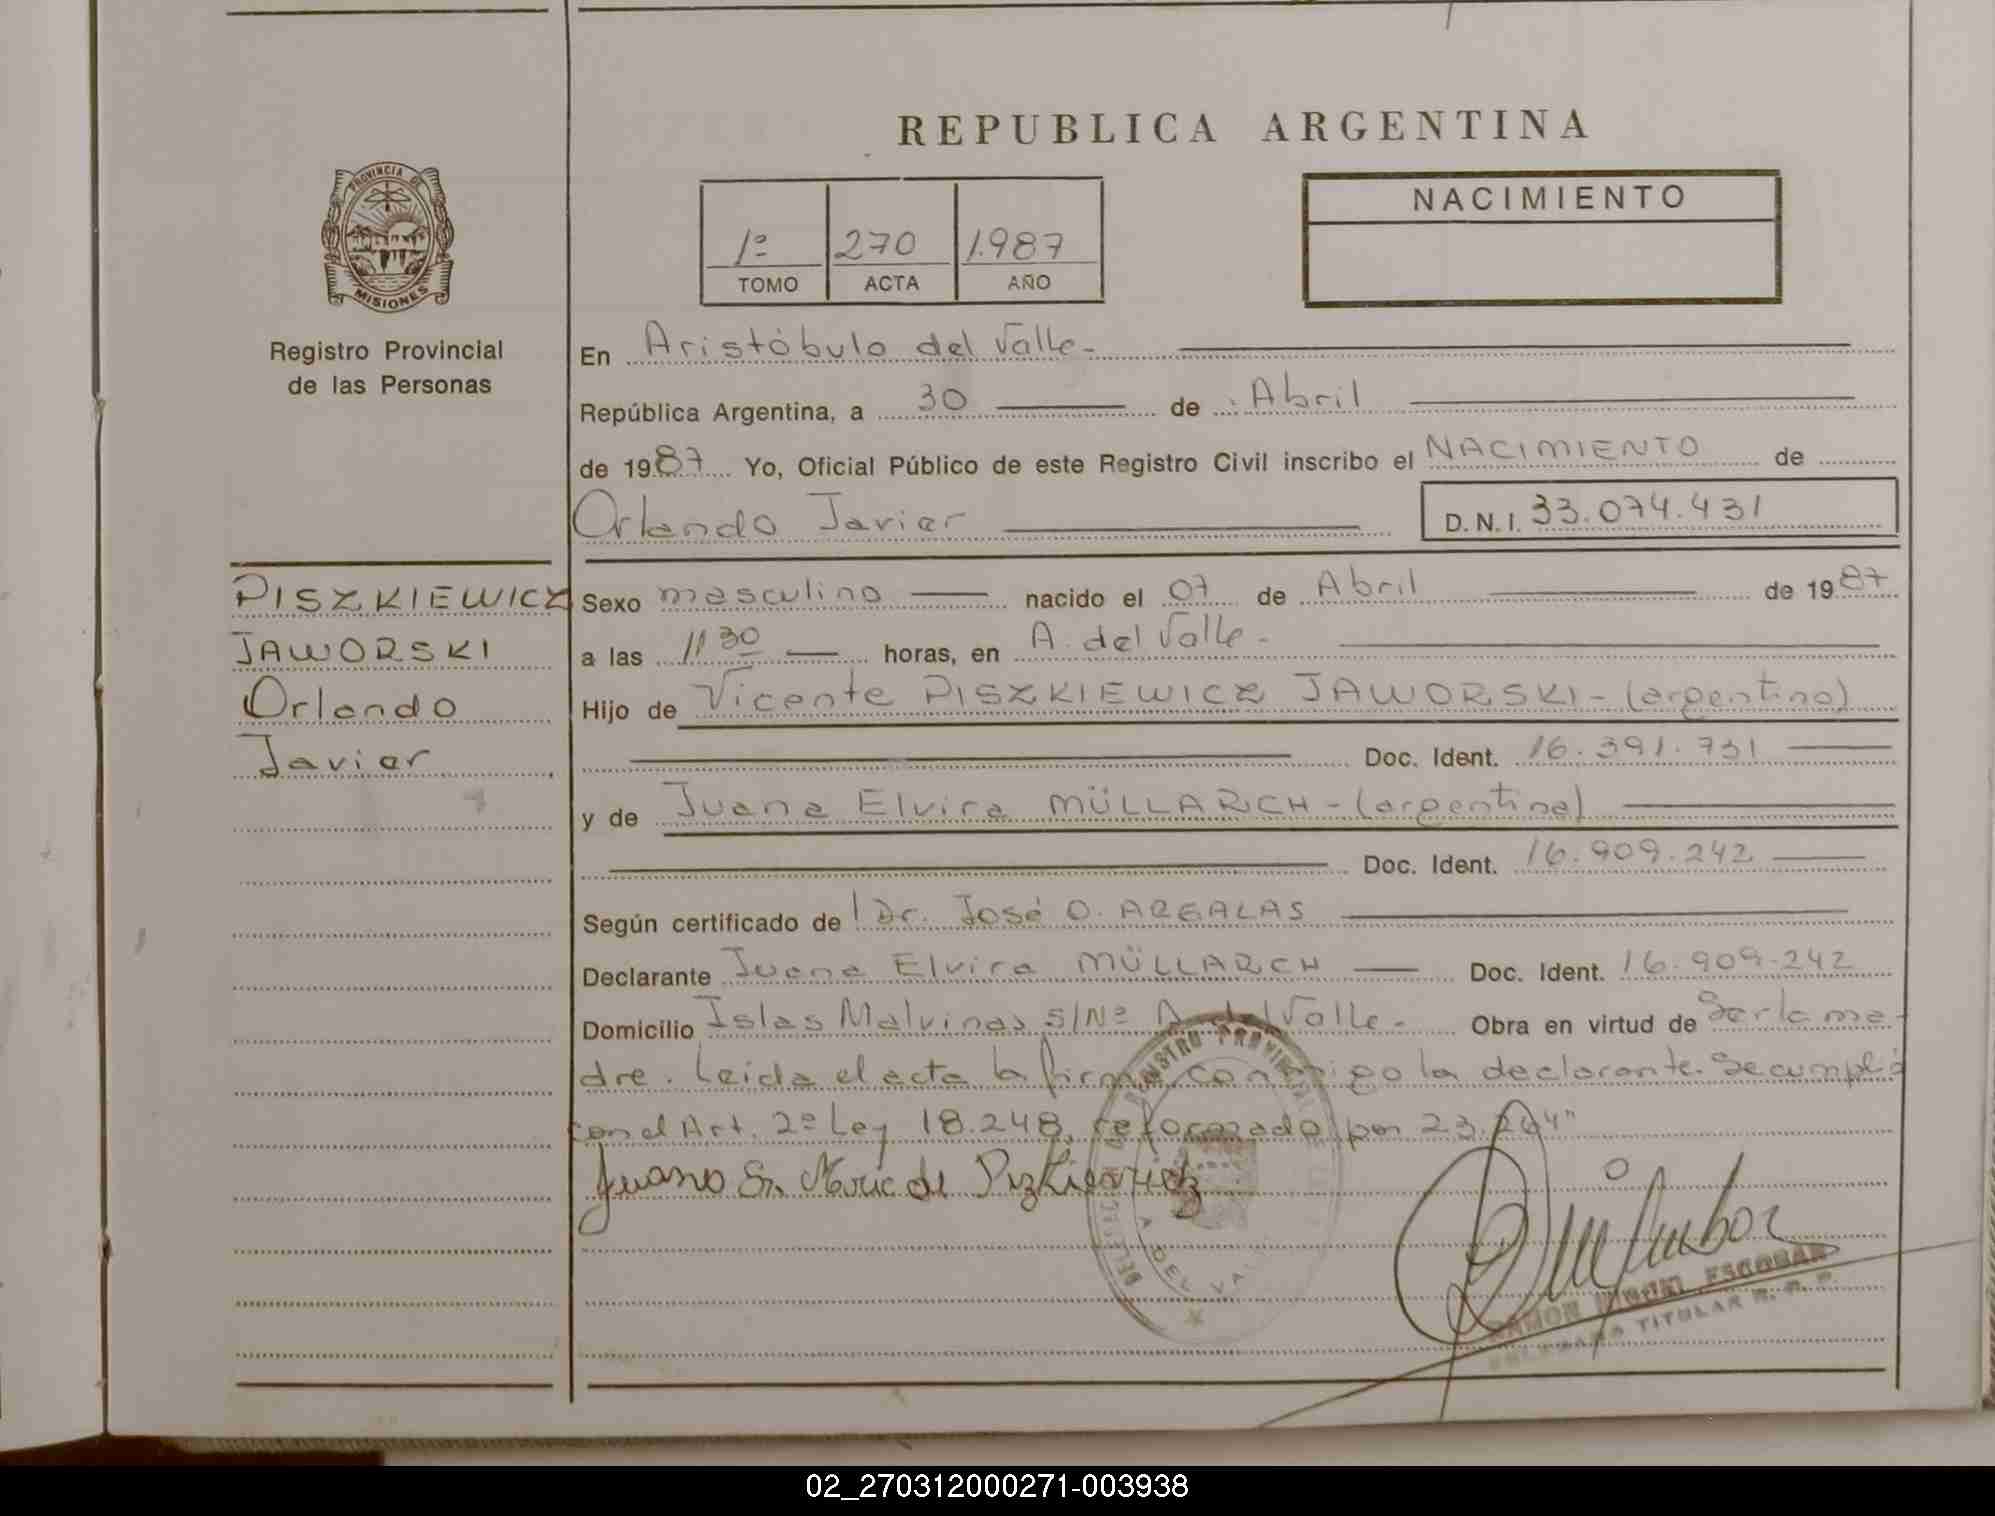 REPUBLICA ARGENTINA
PROVINCIA DE
MISIONES
Registro Provincial
de las Personas
1º 270 1.987
TOMO ACTA AÑO
NACIMIENTO
En Aristóbulo del Valle.-
República Argentina, a 30 de Abril
de 1987 Yo, Oficial Público de este Registro Civil inscribo el NACIMIENTO de
Orlando Javier D.N.I. 33.074.431
PISZKIEWICZ
JAWORSKI
Orlando
Javier
Sexo masculino nacido el 07 de Abril de 1987
a las 11 30 horas, en A. del Valle.-
Hijo de Vicente PISZKIEWICZ JAWORSKI - (argentino)
Doc. Ident. 16.391.731
y de Juana Elvira MÜLLARCH - (argentina)
Doc. Ident. 16.909.242
Según certificado de Dr. José O. AREALAS
Declarante Juana Elvira MÜLLARCH Doc. Ident. 16.909.242
Domicilio Islas Malvinas S/Nº A. del Valle.- Obra en virtud de Ser la ma-
dre. Leida el acta la firma conmigo la declarante. Se cumplió
con el Art. 2º Ley 18.248, reformada por 23.264"
Juana de
REGISTRO PROVINCIAL
A. DEL VALLE
RAMON MIGUEL ESCOBAR
TITULAR R. P. P.
02_270312000271-003938